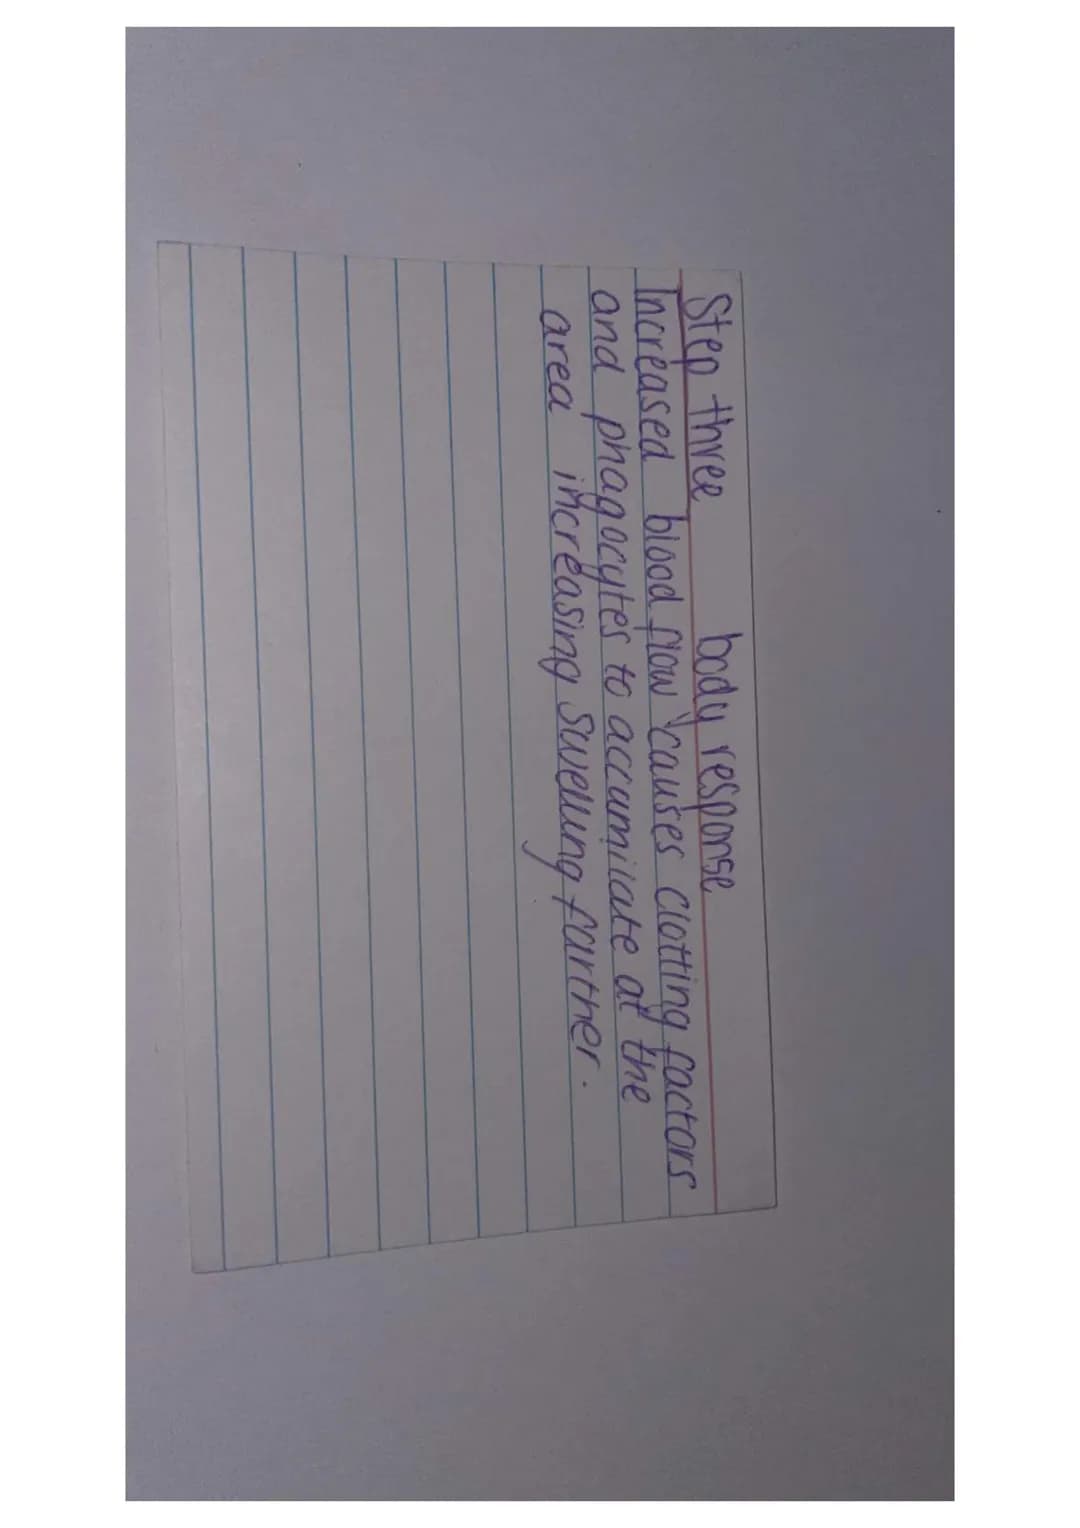 Step three body response
Increased blood flow causes clotting factors
and phagocytes to accumilate at the
area increasing swelling further.